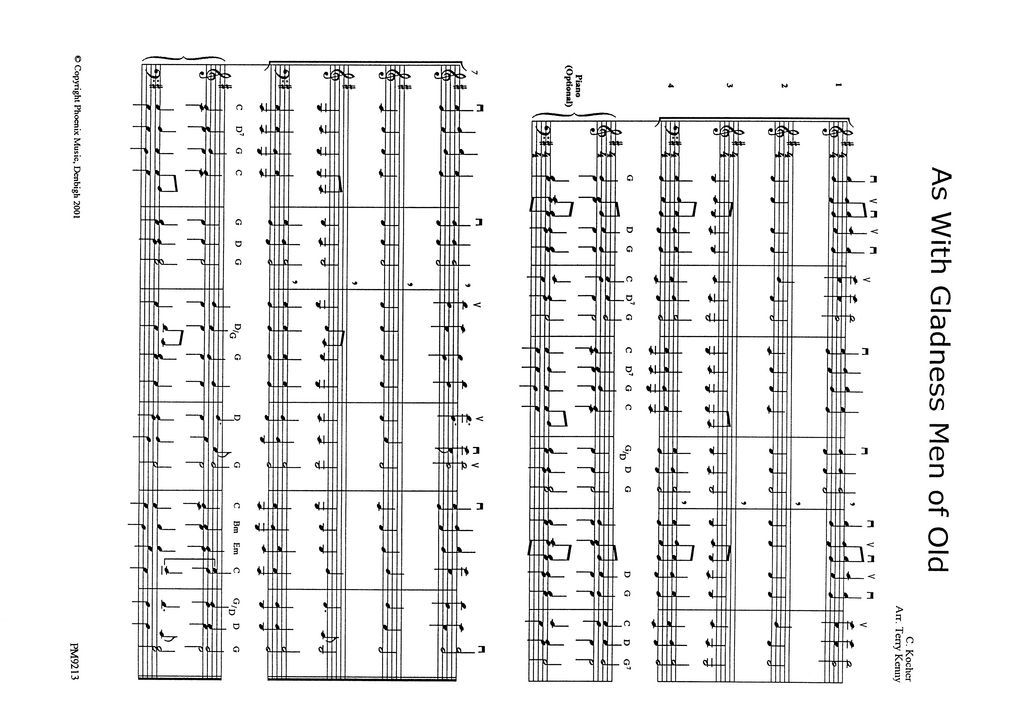 As With Gladness Men of Old
C. Kocher
Arr. Terry Kenny
1
2
3
4
Piano
(Optional)
G D G C D7 G C D7 G C G/D D G D G C D G7
7
C D7 G C G D G D/G G D G C Bm Em C G/D D G
© Copyright Phoenix Music, Denbigh 2001
PM9213